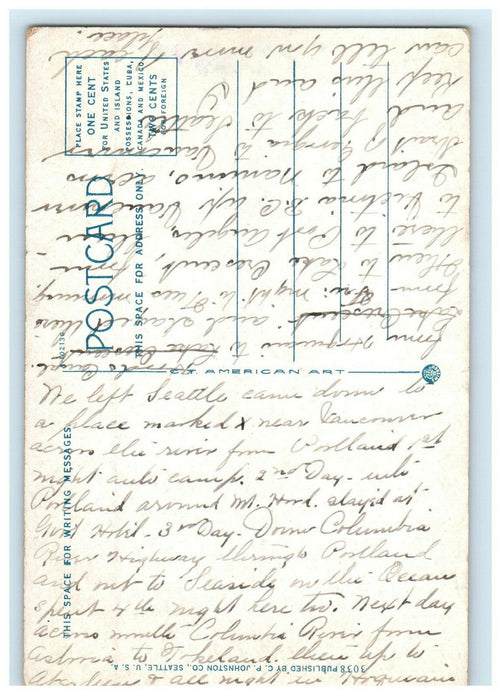 We left Seattle came down to
a place marked x near Vancouver
across the river from Portland, 1st
night auto camp. 2nd Day - into
Portland around Mt. Hood. stayed at
Govt Hotel - 3rd Day. Down Columbia
River Highway through to Portland
and out to Seaside on the Ocean
spent 4th night here too. Next day
across mouth Columbia River from
Astoria to Tokeland. then up to
Aberdeen & all night in Hoquiam
from Hoquiam to Lake Crescent
and stayed there
from Fri. night to Tues morning.
Then to Lake Crescent, from
there to Port Angeles,
to Victoria B.C. up Vancouver
Island to Nanaimo, across
Strait Georgia to Vancouver
and back to Seattle
Keep this and
can tell you more
place.
POSTCARD
THIS SPACE FOR ADDRESS ONLY.
PLACE STAMP HERE
ONE CENT
FOR UNITED STATES
AND ISLAND
POSSESSIONS, CUBA,
CANADA AND MEXICO
TWO CENTS
FOR FOREIGN
C.T. AMERICAN ART
THIS SPACE FOR WRITING MESSAGES
3035 PUBLISHED BY C. P. JOHNSTON CO., SEATTLE, U. S. A.